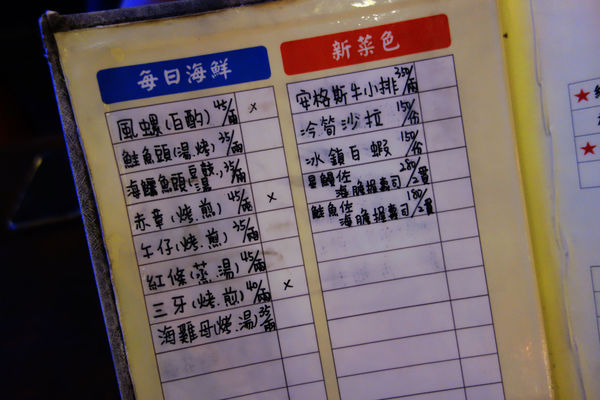 每日海鮮
風螺(白酌) 45/兩 x
鮭魚頭(湯.燒) 25/兩
海鱺魚頭 25/兩
赤章(烤.煎) 45/兩 x
午仔(烤.煎) 25/兩
紅條(蒸.湯) 45/兩
三牙(烤.煎) 40/兩 x
海雞母(烤.湯) 35/兩
新菜色
安格斯牛小排 350/兩
冷筍沙拉 150/
冰鎮白蝦 150/
星鰻佐
海膽握壽司 280/2貫
鮭魚佐
海膽握壽司 180/2貫